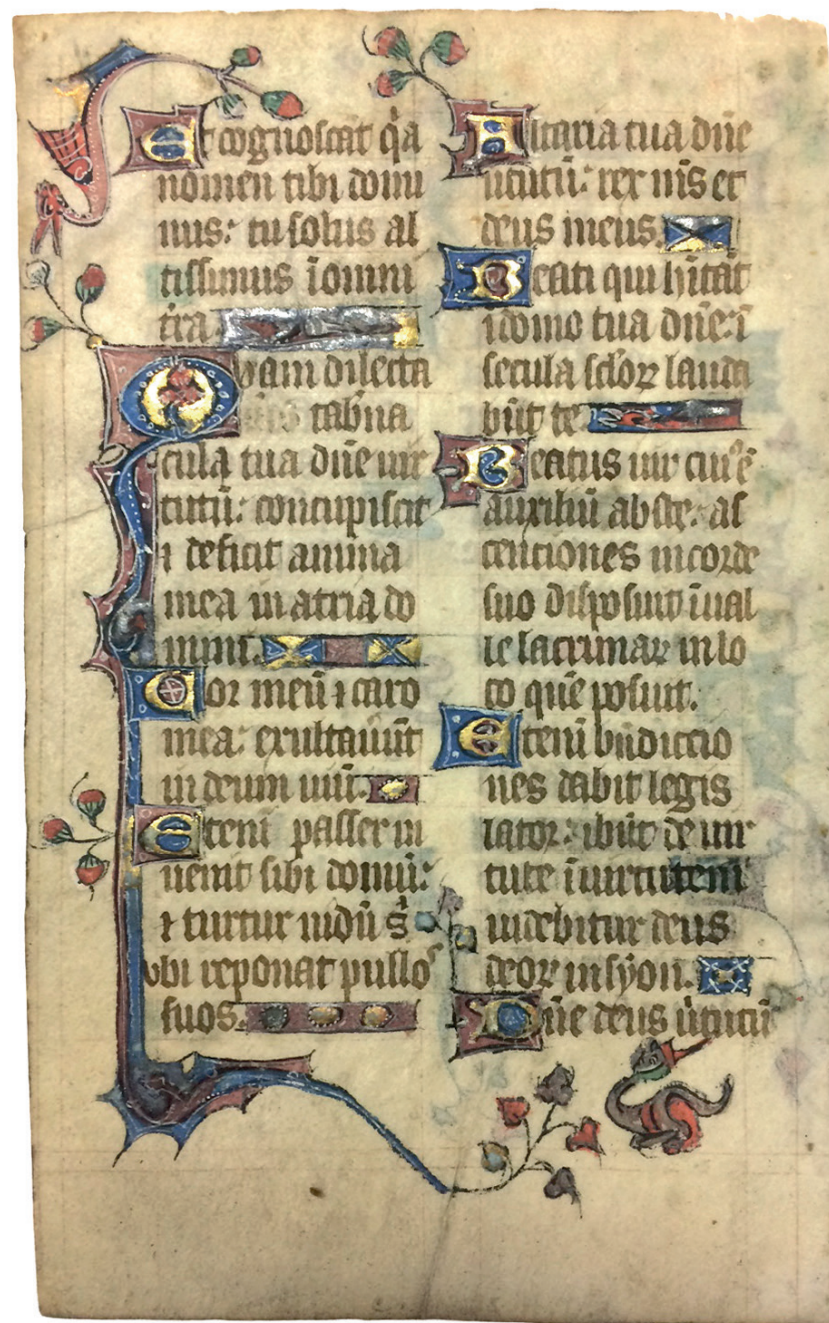 Et cognoscāt q̇a
nomen tibi domi
nus: tu solus al
tissimus ī omni
t̄ra
Quam dilecta
tab̄na
cula tua dn̄e uir
tutū: concupiscit
⁊ deficit anima
mea in atria do
mini.
Cor meū ⁊ caro
mea: exultauūt
in deum uiuū.
Eteni passer in
uenit sibi domū:
⁊ turtur nidū s̄
vbi reponat pullos
suos.
Altaria tua dn̄e
ututū: rex m̄s et
deus meus.
Beati qui h̄itāt
ī domo tua dn̄e: ī
secula sc̄loꝝ lauda
būt te
Beatus uir cui᷒ ē
auxiliū abs te: as
centiones in corde
suo disposuit ī ual
le lacrimaꝝ in lo
co quē posuit.
Etenī bn̄dictio
nes dabit legis
lator: ibūt de uir
tute ī uirtutem
uidebitur deus
deoꝝ in syon.
Dn̄e deus u̇tutū